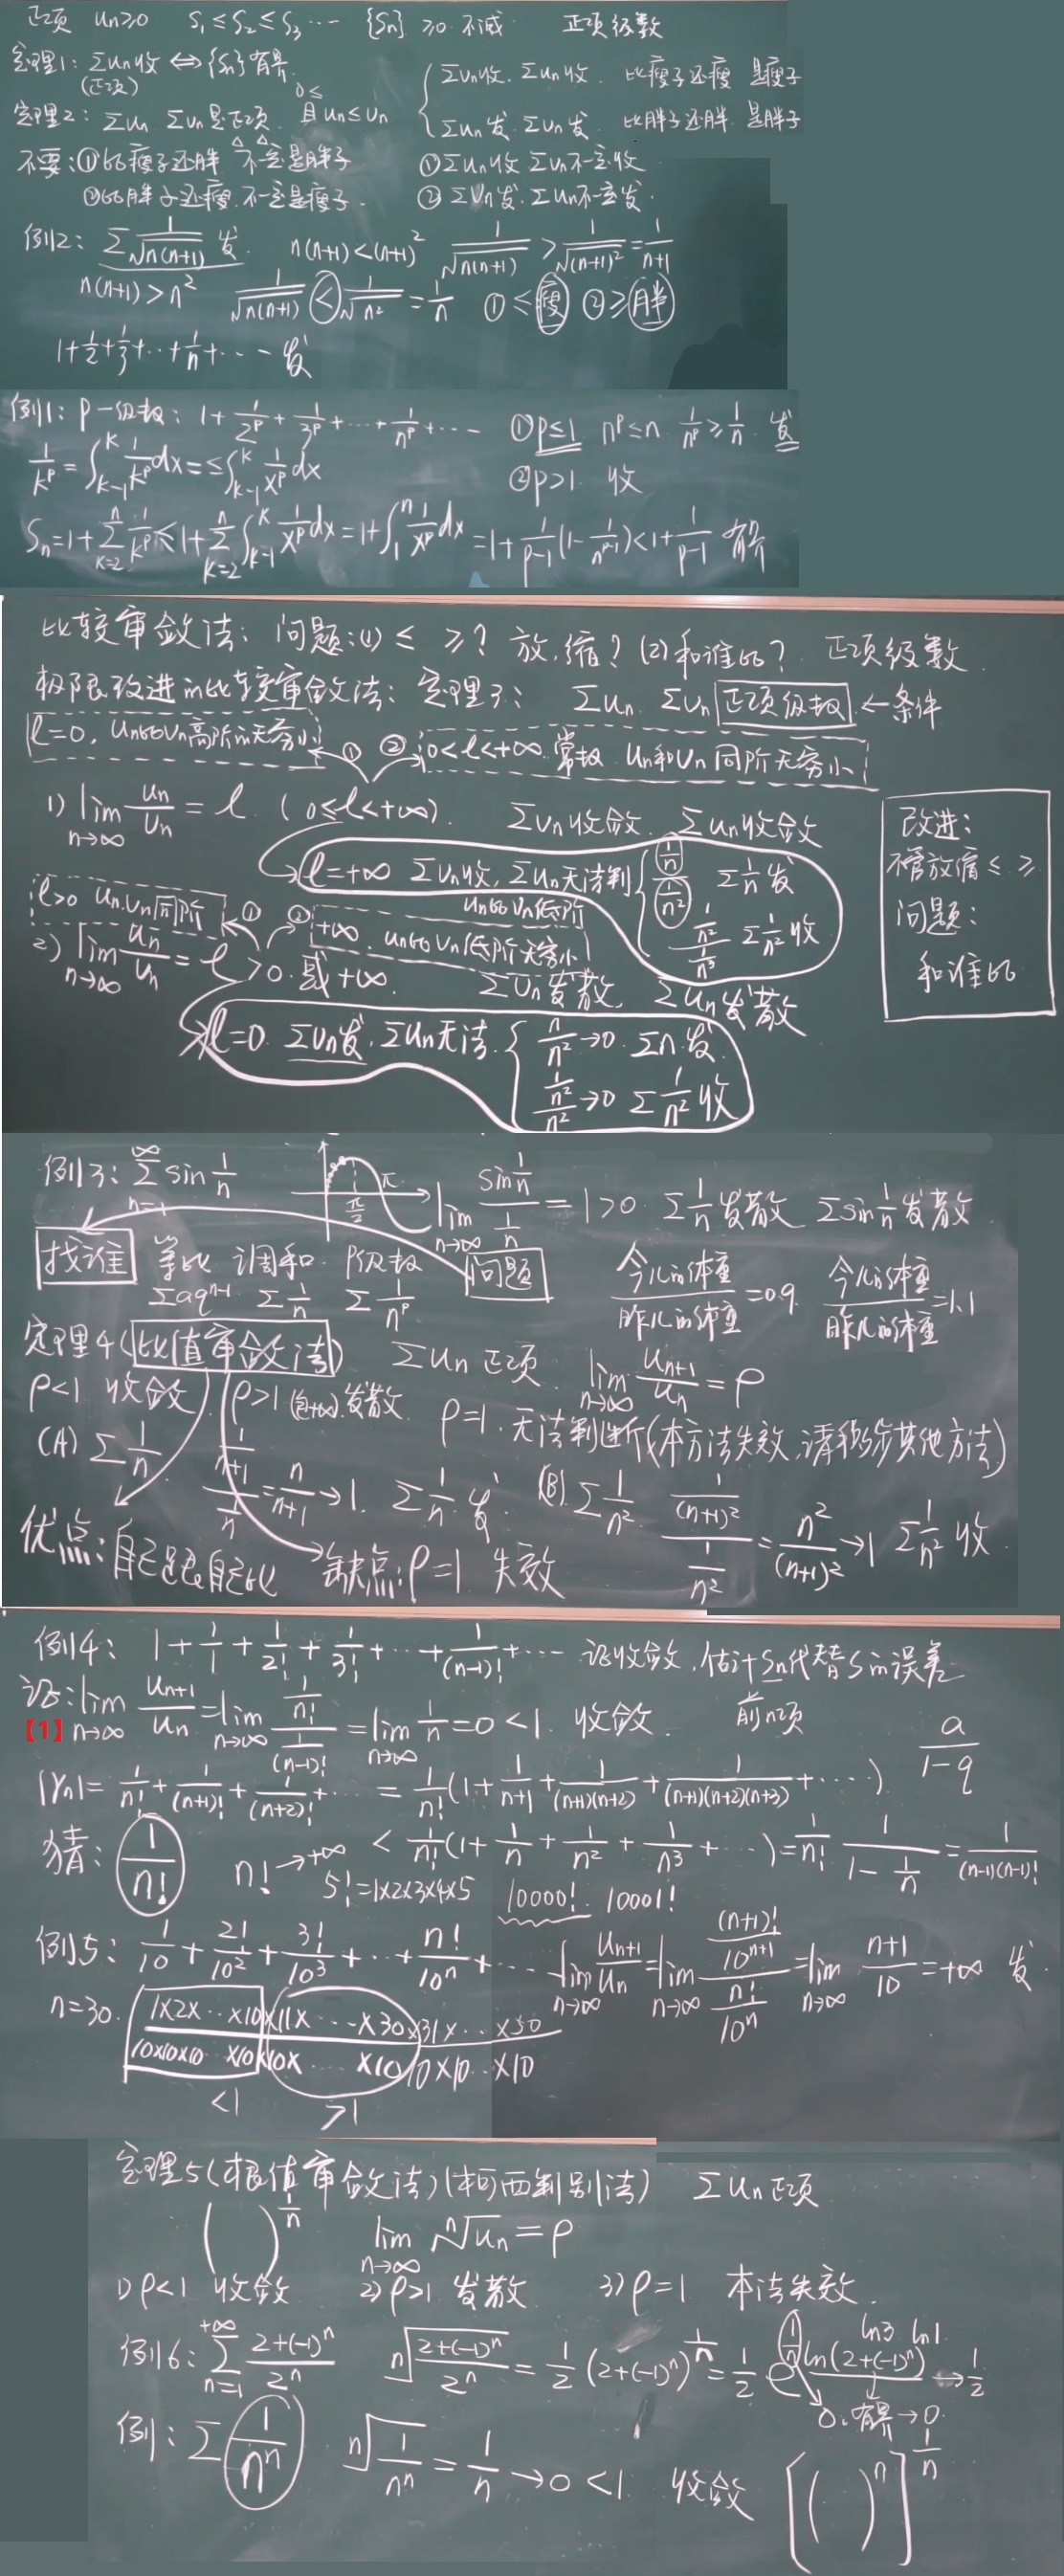 正项 un≥0 S₁≤S₂≤S₃… {Sn} ≥0 不减 正项级数
定理1: Σun收 ⇔ {Sn}有界.
(正项)
定理2: Σun Σvn是正项. 且 0≤ un≤vn
{ Σvn收. Σun收. 比瘦子还瘦 是瘦子
Σun发. Σvn发. 比胖子还胖. 是胖子
不要: ①比瘦子还胖 不一定是胖子 ①Σun收 Σvn不一定收
②比胖子还瘦. 不一定是瘦子. ② Σvn发. Σun不一定发.
例2: Σ 1/√(n(n+1)) 发. n(n+1)<(n+1)² 1/√(n(n+1)) > 1/√((n+1)²) = 1/(n+1)
n(n+1)>n² 1/√(n(n+1)) < 1/√(n²) = 1/n ① ≤ 瘦 ② ≥ 胖
1+1/2+1/3+…+1/n+… 发
例1: P-级数: 1+1/2^p+1/3^p+…+1/n^p+… ①p≤1 n^p≤n 1/n^p≥1/n 发
1/k^p = ∫_{k-1}^{k} 1/k^p dx = ≤ ∫_{k-1}^{k} 1/x^p dx ②p>1. 收
Sn=1+Σ_{k=2}^{n} 1/k^p ≤ 1+Σ_{k=2}^{n} ∫_{k-1}^{k} 1/x^p dx = 1+∫_1^n 1/x^p dx = 1+1/(p-1) (1-1/n^{p-1}) < 1+1/(p-1) 有界
比较审敛法: 问题:(1) ≤ ≥? 放,缩? (2)和谁比? 正项级数.
极限改进的比较审敛法: 定理3: Σun Σvn 正项级数 ←条件
l=0, un比vn高阶的无穷小 ① ② 0<l<+∞ 常数 un和vn同阶无穷小
1) lim_{n→∞} un/vn = l. (0≤l<+∞). Σvn收敛. Σun收敛
l=+∞ Σvn收, Σun无法判 { (1/n)/(1/n²) Σ1/n发
un比vn低阶
(1/n²)/(1/n³) Σ1/n²收
改进:
不管放缩 ≤ ≥
问题:
和谁比
l>0 un.vn同阶 ① ② +∞. un比vn低阶无穷小
2) lim_{n→∞} un/vn = l >0. 或 +∞. Σvn发散, Σun发散
l=0. Σvn发. Σun无法. { n/n²→0. Σn.发.
(1/n²)/n²→0 Σ1/n²收
例3: Σ_{n=1}^{∞} sin 1/n π/2 π lim_{n→∞} (sin 1/n)/(1/n) = 1>0. Σ1/n发散 Σsin1/n发散
找谁 等比 调和. P级数 问题
Σaq^{n-1} Σ1/n Σ1/n^p
今儿的体重/昨儿的体重=0.9 今儿的体重/昨儿的体重=1.1
定理4(比值审敛法) Σun正项. lim_{n→∞} u_{n+1}/un = ρ
ρ<1 收敛 ρ>1 (或+∞).发散. ρ=1.无法判断(本方法失效,请移步其他方法)
(A) Σ1/n. (1/(n+1))/(1/n) = n/(n+1) →1. Σ1/n.发. (B).Σ1/n². (1/(n+1)²)/(1/n²) = n²/(n+1)² →1 Σ1/n²收.
优点:自己跟自己比 缺点:ρ=1 失效
例4: 1+1/1+1/2!+1/3!+…+1/(n-1)!+… 证收敛,估计Sn代替S的误差
证: lim_{n→∞} u_{n+1}/un = lim_{n→∞} (1/n!)/(1/(n-1)!) = lim_{n→∞} 1/n = 0 <1. 收敛. 前n项
【1】
a/(1-q)
|γn| = 1/n!+1/(n+1)!+1/(n+2)!+… = 1/n!(1+1/(n+1)+1/((n+1)(n+2))+1/((n+1)(n+2)(n+3))+…)
猜: 1/n! n!→+∞ < 1/n!(1+1/n+1/n²+1/n³+…) = 1/n! 1/(1-1/n) = 1/((n-1)(n-1)!)
5!=1×2×3×4×5 10000! 10001!
例5: 1/10+2!/10²+3!/10³+…+n!/10ⁿ+… lim_{n→∞} u_{n+1}/un = lim_{n→∞} ((n+1)!/10^{n+1})/(n!/10ⁿ) = lim_{n→∞} (n+1)/10 = +∞ 发.
n=30. 1×2×…×10×11×…×30×31×…×50
10×10×10…×10×10×…×10/10×10…×10
<1 >1
定理5(根值审敛法)(柯西判别法) Σun正项
( )^{1/n} lim_{n→∞} ⁿ√un = ρ
1) ρ<1 收敛 2) ρ>1 发散 3) ρ=1 本法失效.
例6: Σ_{n=1}^{+∞} (2+(-1)ⁿ)/2ⁿ ⁿ√((2+(-1)ⁿ)/2ⁿ) = 1/2 (2+(-1)ⁿ)^{1/n} = 1/2 e^{1/n ln(2+(-1)ⁿ)} → 1/2
ln3 ln1
0.有界→0.
例: Σ 1/nⁿ ⁿ√(1/nⁿ) = 1/n →0 <1 收敛 [( )ⁿ]^{1/n}